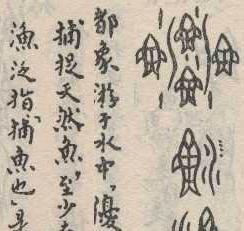 都象游于水中,優
捕捉天然魚,至少在
漁泛指捕魚也」見